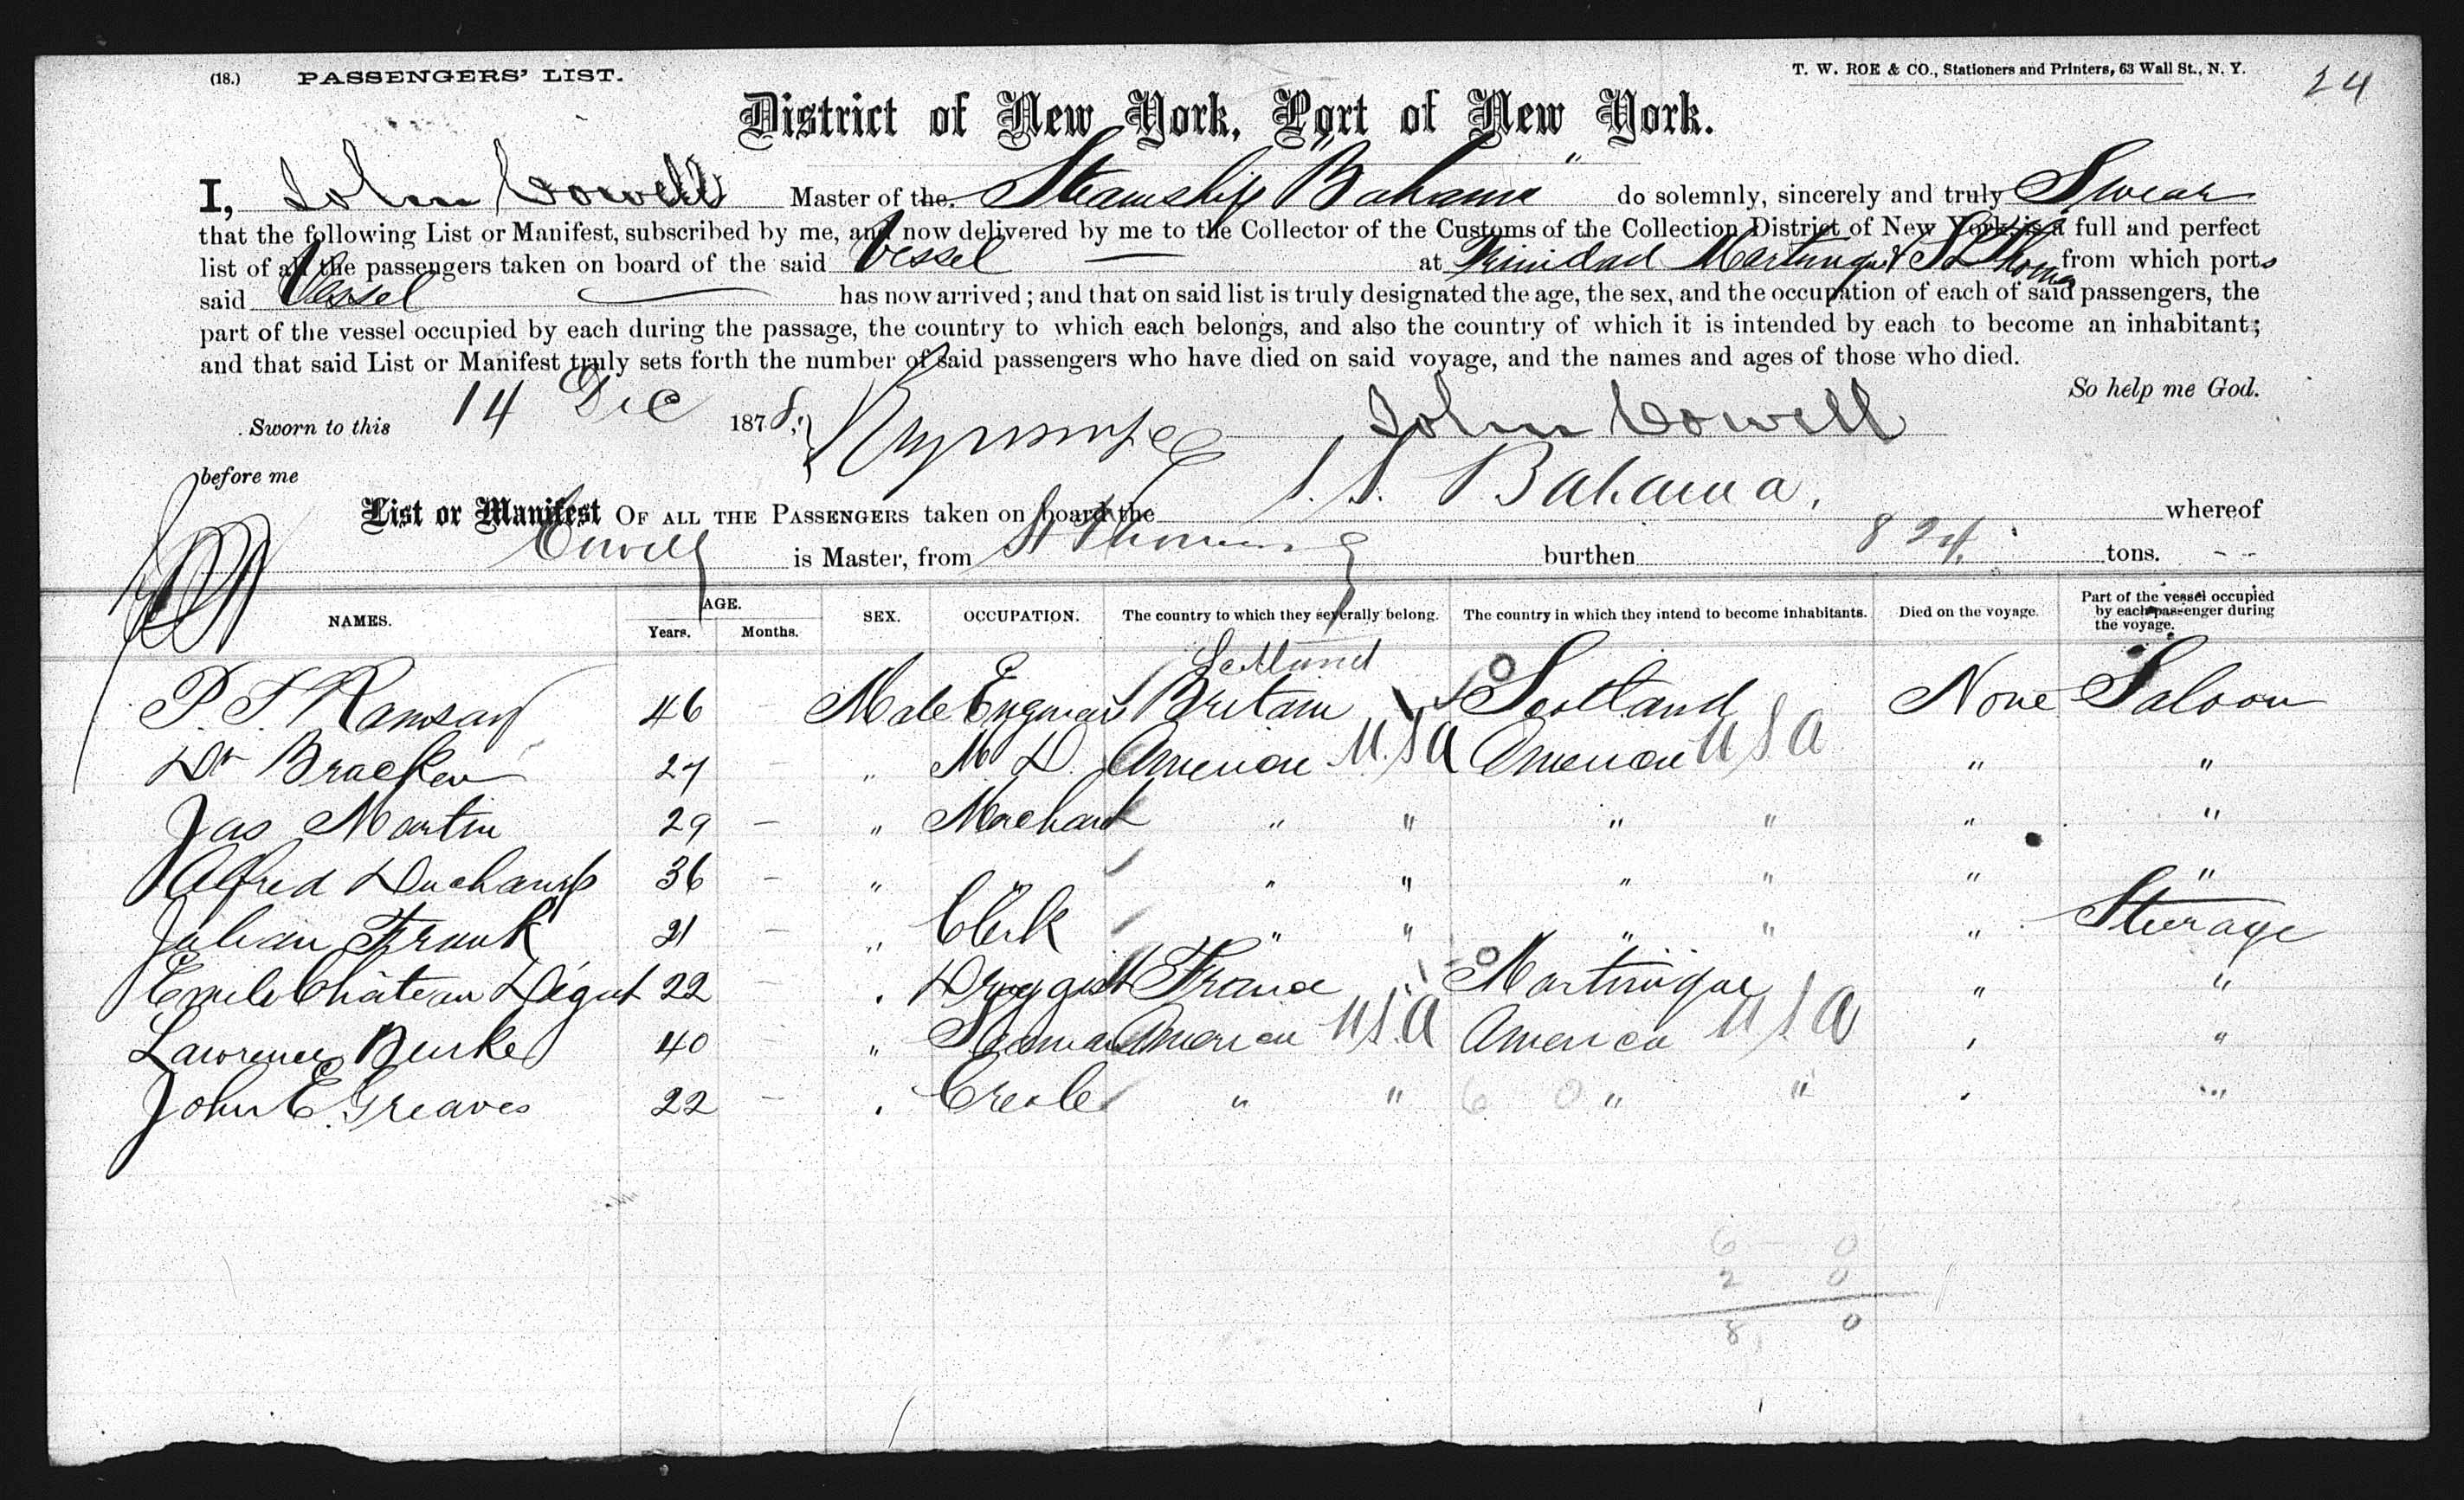 (18.) PASSENGERS' LIST. T. W. ROE & CO., Stationers and Printers, 63 Wall St., N. Y. 24
District of New York, Port of New York.
I, John Cowell Master of the Steamship "Bahama" do solemnly, sincerely and truly Swear
that the following List or Manifest, subscribed by me, and now delivered by me to the Collector of the Customs of the Collection District of New York, is a full and perfect
list of all the passengers taken on board of the said Vessel at Trinidad Martinique & St Thomas from which ports
said Vessel has now arrived; and that on said list is truly designated the age, the sex, and the occupation of each of said passengers, the
part of the vessel occupied by each during the passage, the country to which each belongs, and also the country of which it is intended by each to become an inhabitant;
and that said List or Manifest truly sets forth the number of said passengers who have died on said voyage, and the names and ages of those who died.
So help me God.
Sworn to this 14 Dec 1878, John Cowell
before me
List or Manifest OF ALL THE PASSENGERS taken on board the S.S. Bahama, whereof
Cowell is Master, from St Thomas burthen 824 tons.
NAMES. AGE. Years. Months. SEX. OCCUPATION. The country to which they severally belong. The country in which they intend to become inhabitants. Died on the voyage. Part of the vessel occupied by each passenger during the voyage.
Scotland
P. T. Ramsay 46 - Male Britain Scotland None Saloon
Dr Bracken 27 - " M. D. America U.S.A America U S A " "
Jas Martin 29 - " Merchant " " " " " "
Alfred Duchamp 36 - " " " " " " " "
Julian Frank 21 - " Clerk " " " " " Steerage
Emile Château Dégut 22 - " Druggist France Martinique " "
Lawrence Burke 40 - " Seaman America U.S.A America U S A " "
John E Greaves 22 - " Creole " " 6 0 " " " "
6 - 0
2 0
8 0